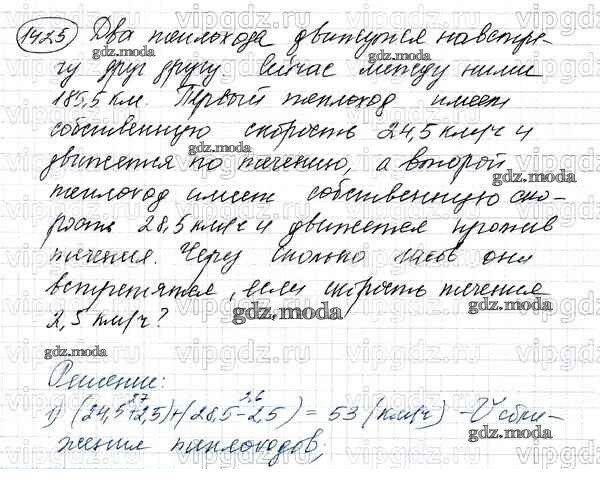 1425 Два теплохода движутся навстре-
чу друг другу. Сейчас между ними
185,5 км. Первый теплоход имеет
собственную скорость 24,5 км/ч и
движется по течению, а второй
теплоход имеет собственную ско-
рость 28,5 км/ч и движется против
течения. Через сколько часов они
встретятся, если скорость течения
2,5 км/ч?
Решение:
27 26
1) (24,5+2,5)+(28,5-2,5) = 53 (км/ч) - V сбли-
жения теплоходов;
gdz.moda
vipgdz.ru